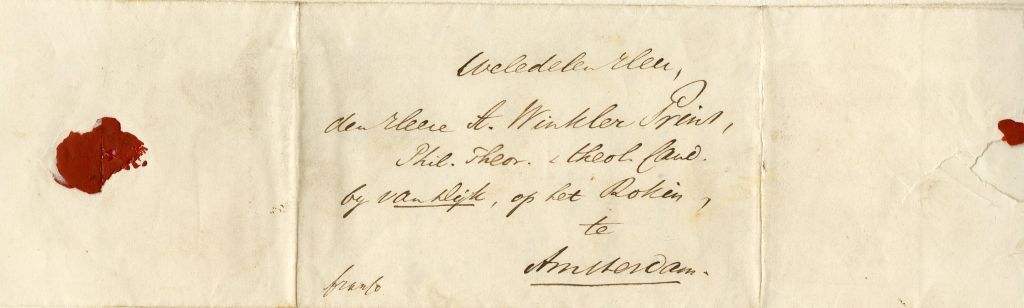 Weledelen Heer,
den Heere A. Winkler Prins,
Phil. Theor. & theol. Cand.
by van Dijk, op het Rokin,
te
Amsterdam.
franco